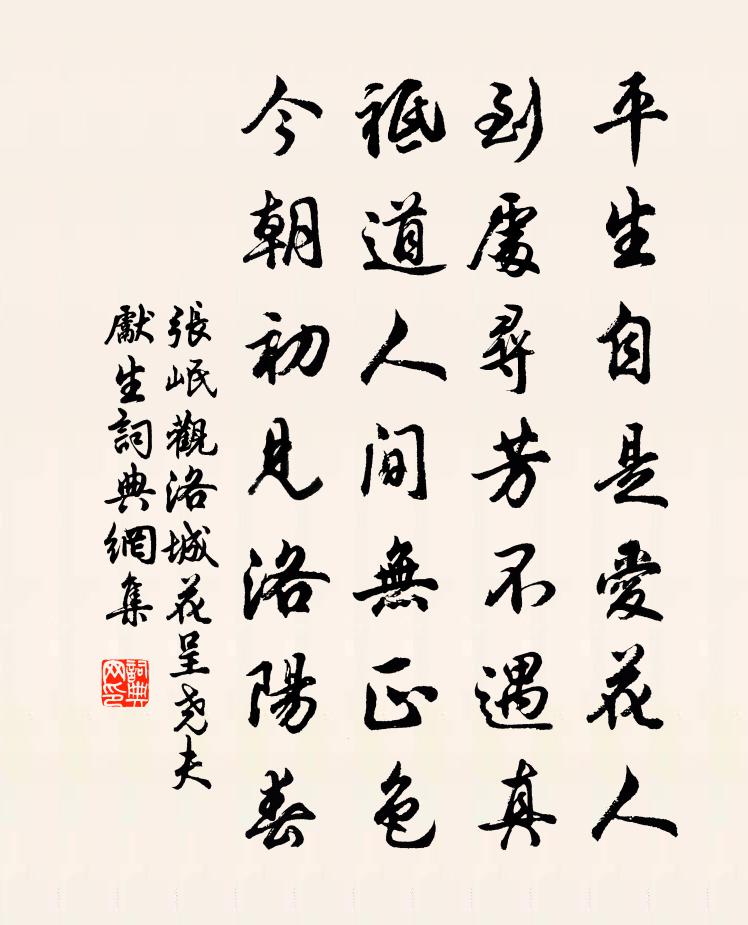 平生自是愛花人
到處尋芳不遇真
祗道人間無正色
今朝初見洛陽春
張岷觀洛城花呈尧夫
獻生詞典網集
詞典网印